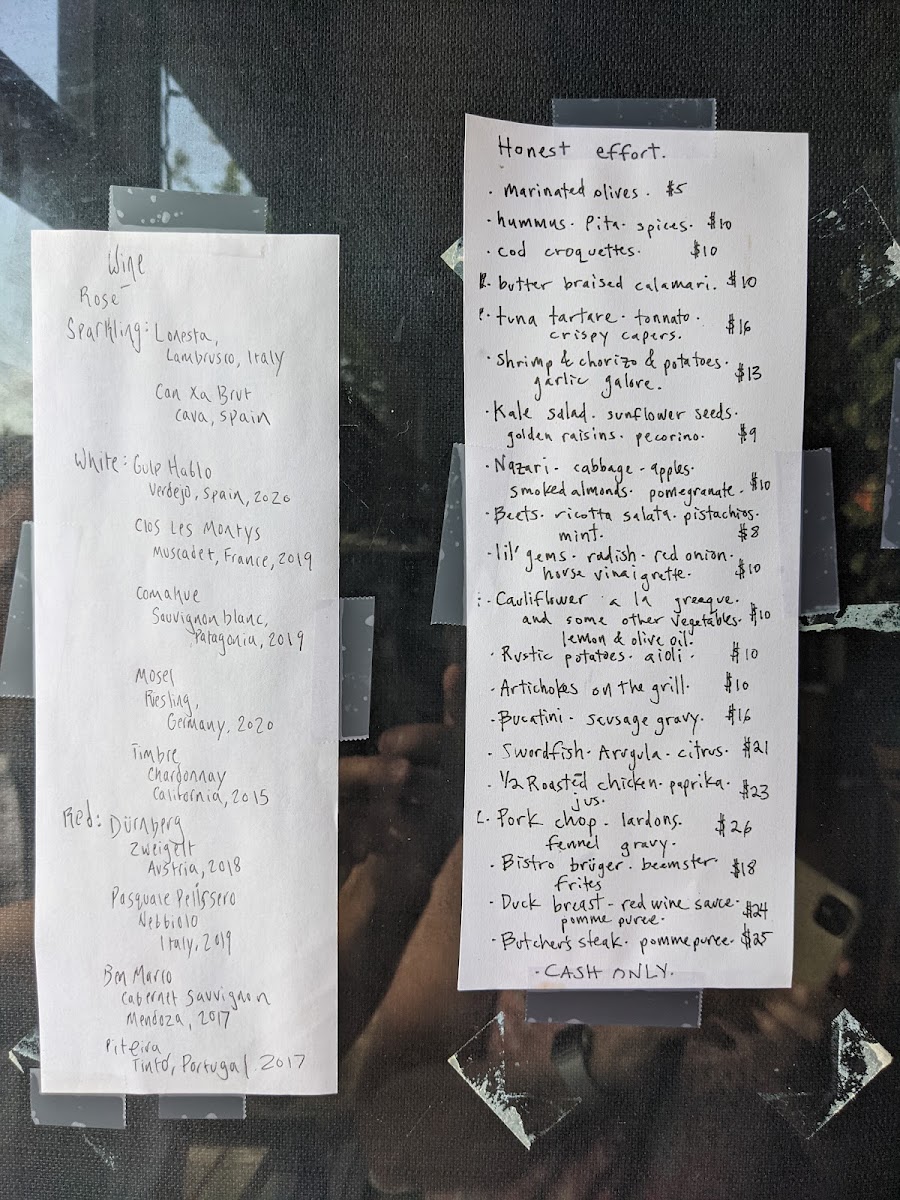 Wine
Rosé
Sparkling: Lonesta,
Lambrusco, Italy
Can Xa Brut
Cava, Spain
White: Gulp Hablo
Verdejo, Spain, 2020
Clos Les Montys
Muscadet, France, 2019
Comahue
Sauvignon blanc,
Patagonia, 2019
Mosel
Riesling,
Germany, 2020
Timbre
Chardonnay
California, 2015
Red: Dürnberg
Zweigelt
Austria, 2018
Pasquale Pelissero
Nebbiolo
Italy, 2019
Ben Marco
Cabernet Sauvignon
Mendoza, 2017
Piteira
Tinto, Portugal 2017
Honest effort.
· marinated olives. $5
· hummus. Pita. spices. $10
· cod croquettes. $10
· butter braised calamari. $10
· tuna tartare. tonnato.
crispy capers. $16
· Shrimp & chorizo & potatoes.
garlic galore. $13
· Kale salad. sunflower seeds.
golden raisins. pecorino. $9
· Nazari. cabbage - apples.
smoked almonds. pomegranate. $10
· Beets. ricotta salata. pistachios.
mint. $8
· lil' gems. radish. red onion.
house vinaigrette. $10
· Cauliflower a la greeque.
and some other vegetables. $10
lemon & olive oil.
· Rustic potatoes. aioli. $10
· Artichokes on the grill. $10
· Bucatini. sausage gravy. $16
· Swordfish. Arugula. citrus. $21
· 1/2 Roasted chicken. paprika.
jus. $23
· Pork chop. lardons. $26
fennel gravy.
· Bistro brüger. beemster. $18
frites
· Duck breast - red wine sauce. $24
pomme puree.
· Butcher's steak. pomme puree. $25
· CASH ONLY.